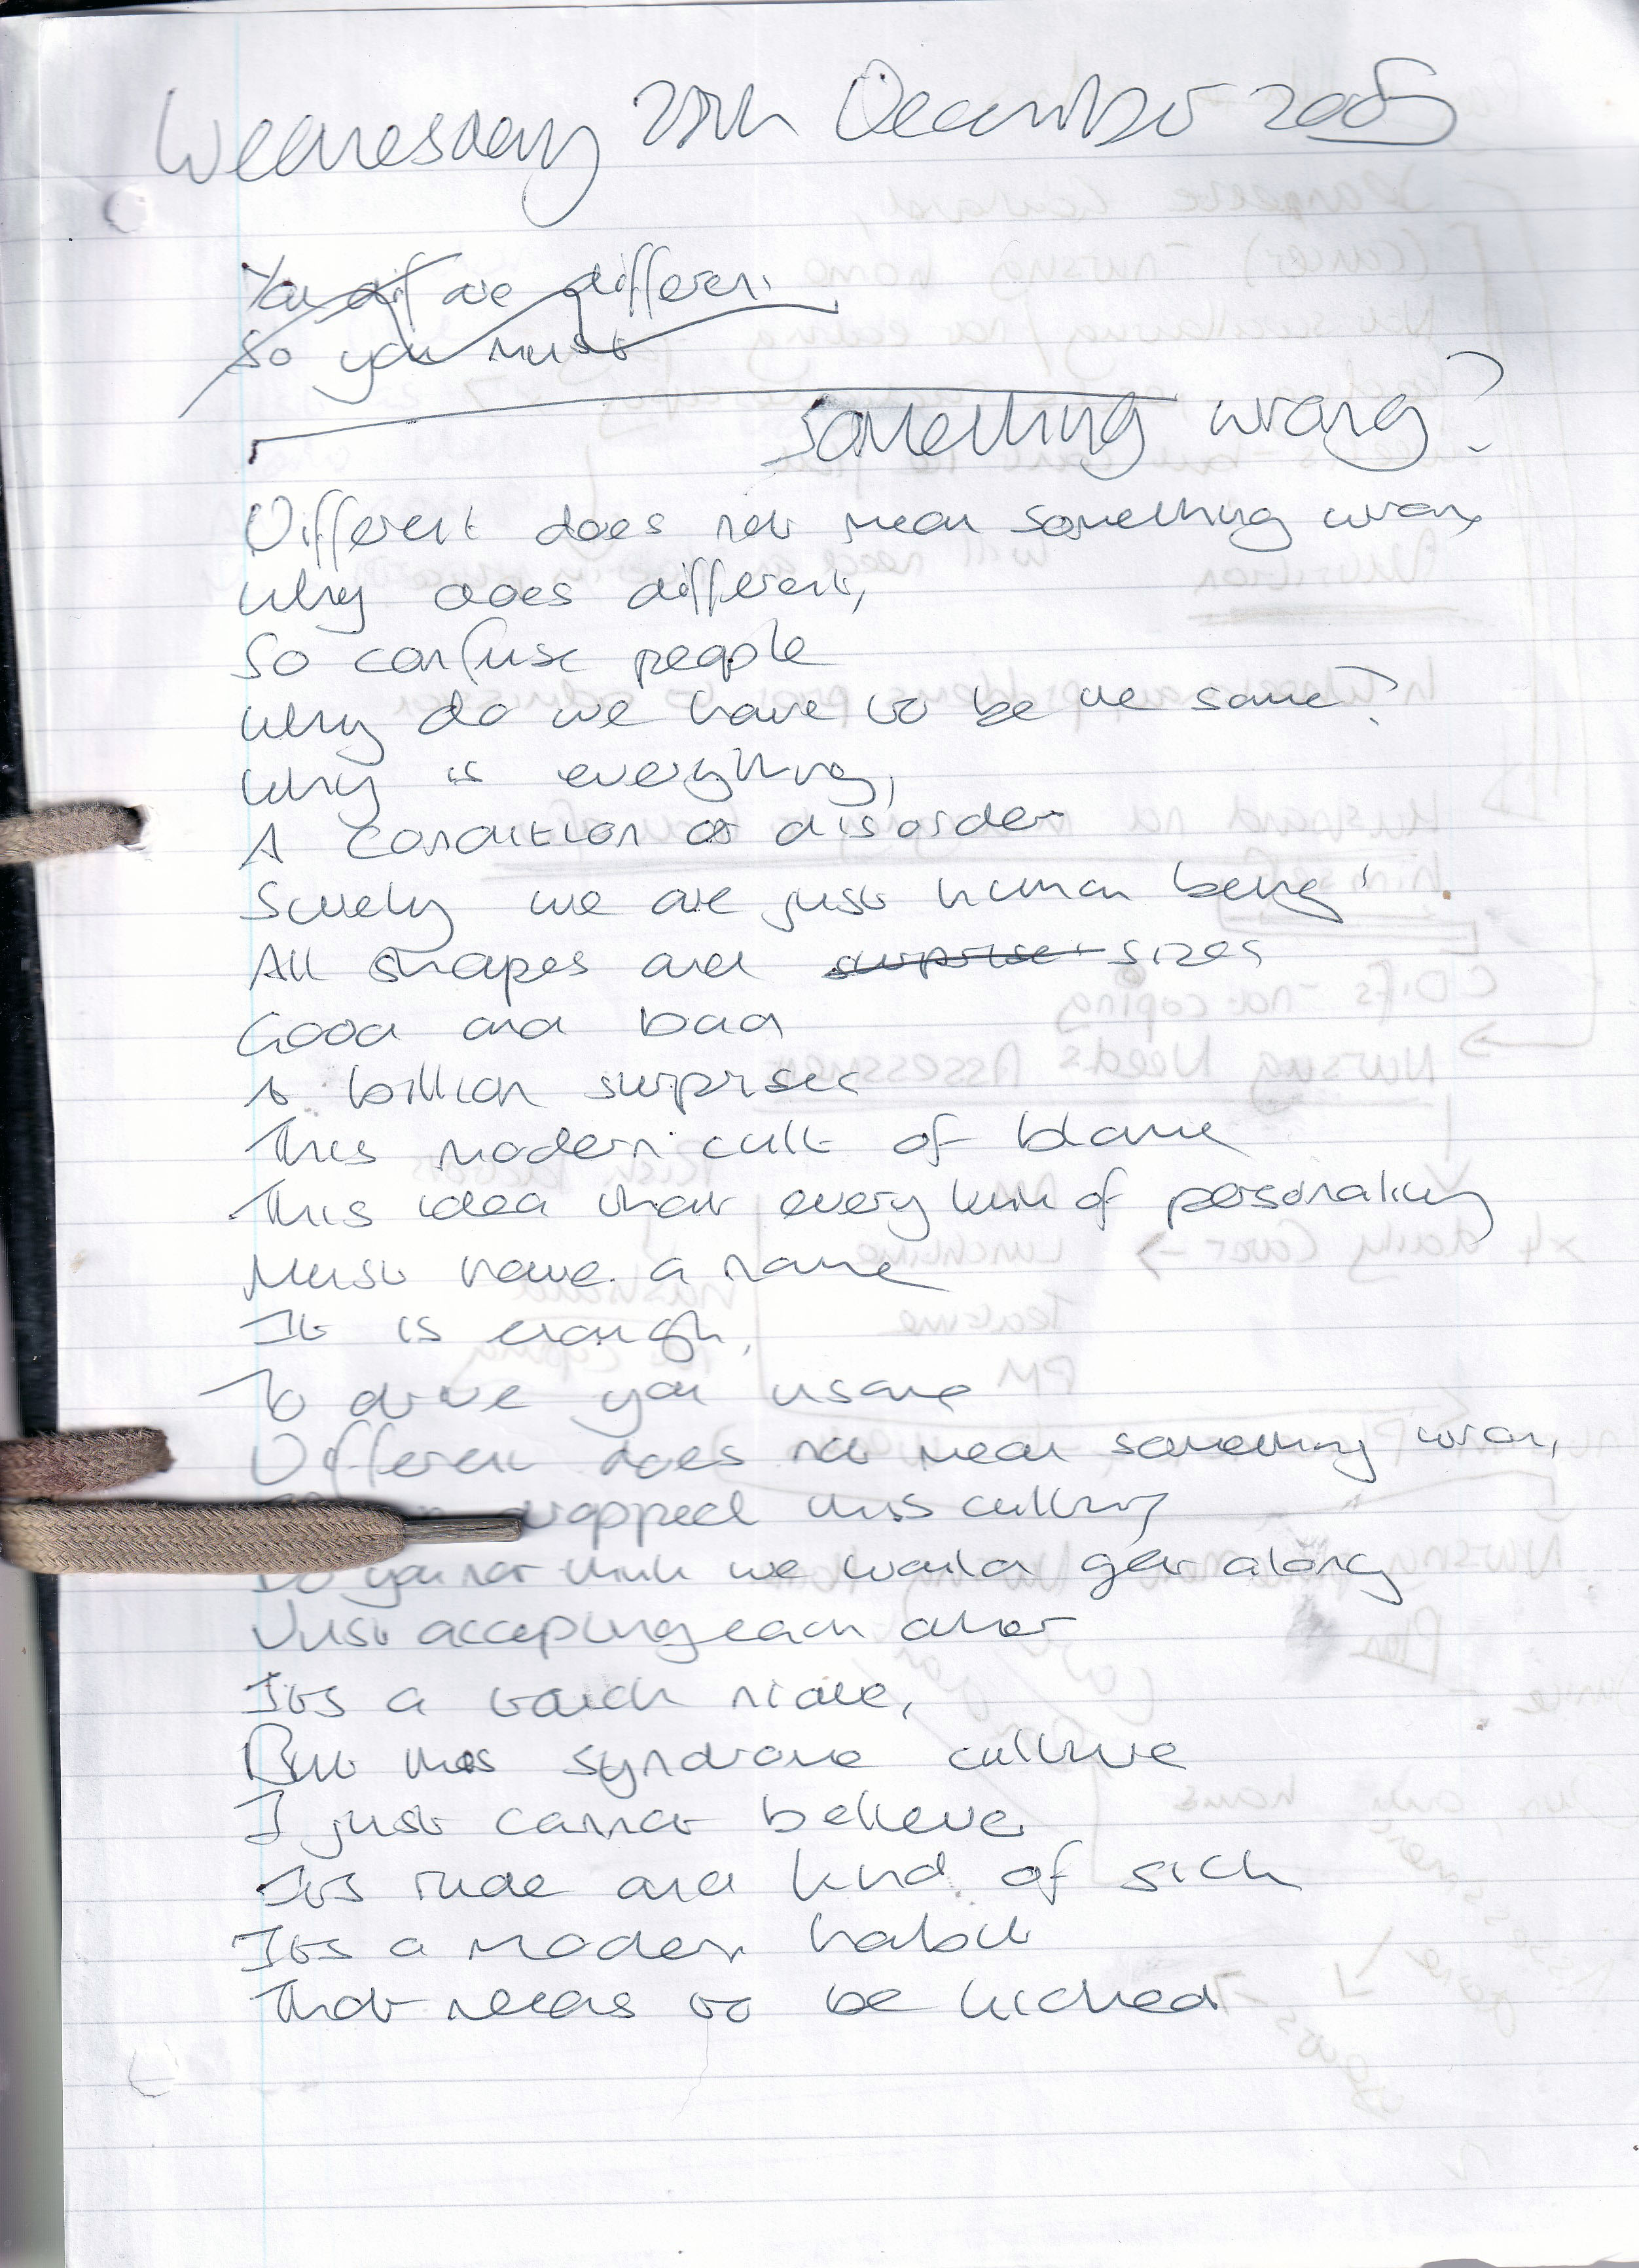 Wednesday 28th December 2005
You dif are different
So you must
Something wrong?
Different does not mean something wrong
Why does different,
So confuse people
Why do we have to be the same?
Why is everything,
A condition or disorder
Surely we are just human beings
All shapes and surprises sizes
Good and bad
A billion surprises
This modern cult of blame
This idea that every kink of personality
Must have a name
It is enough,
To drive you insane
Different does not mean something wrong
dropped this culture
Do you not think we would get along
Just accepting each other
Its a touch niave,
But this syndrome culture
I just cannot believe
Its rude and kind of sick
Its a modern habit
That needs to be kicked